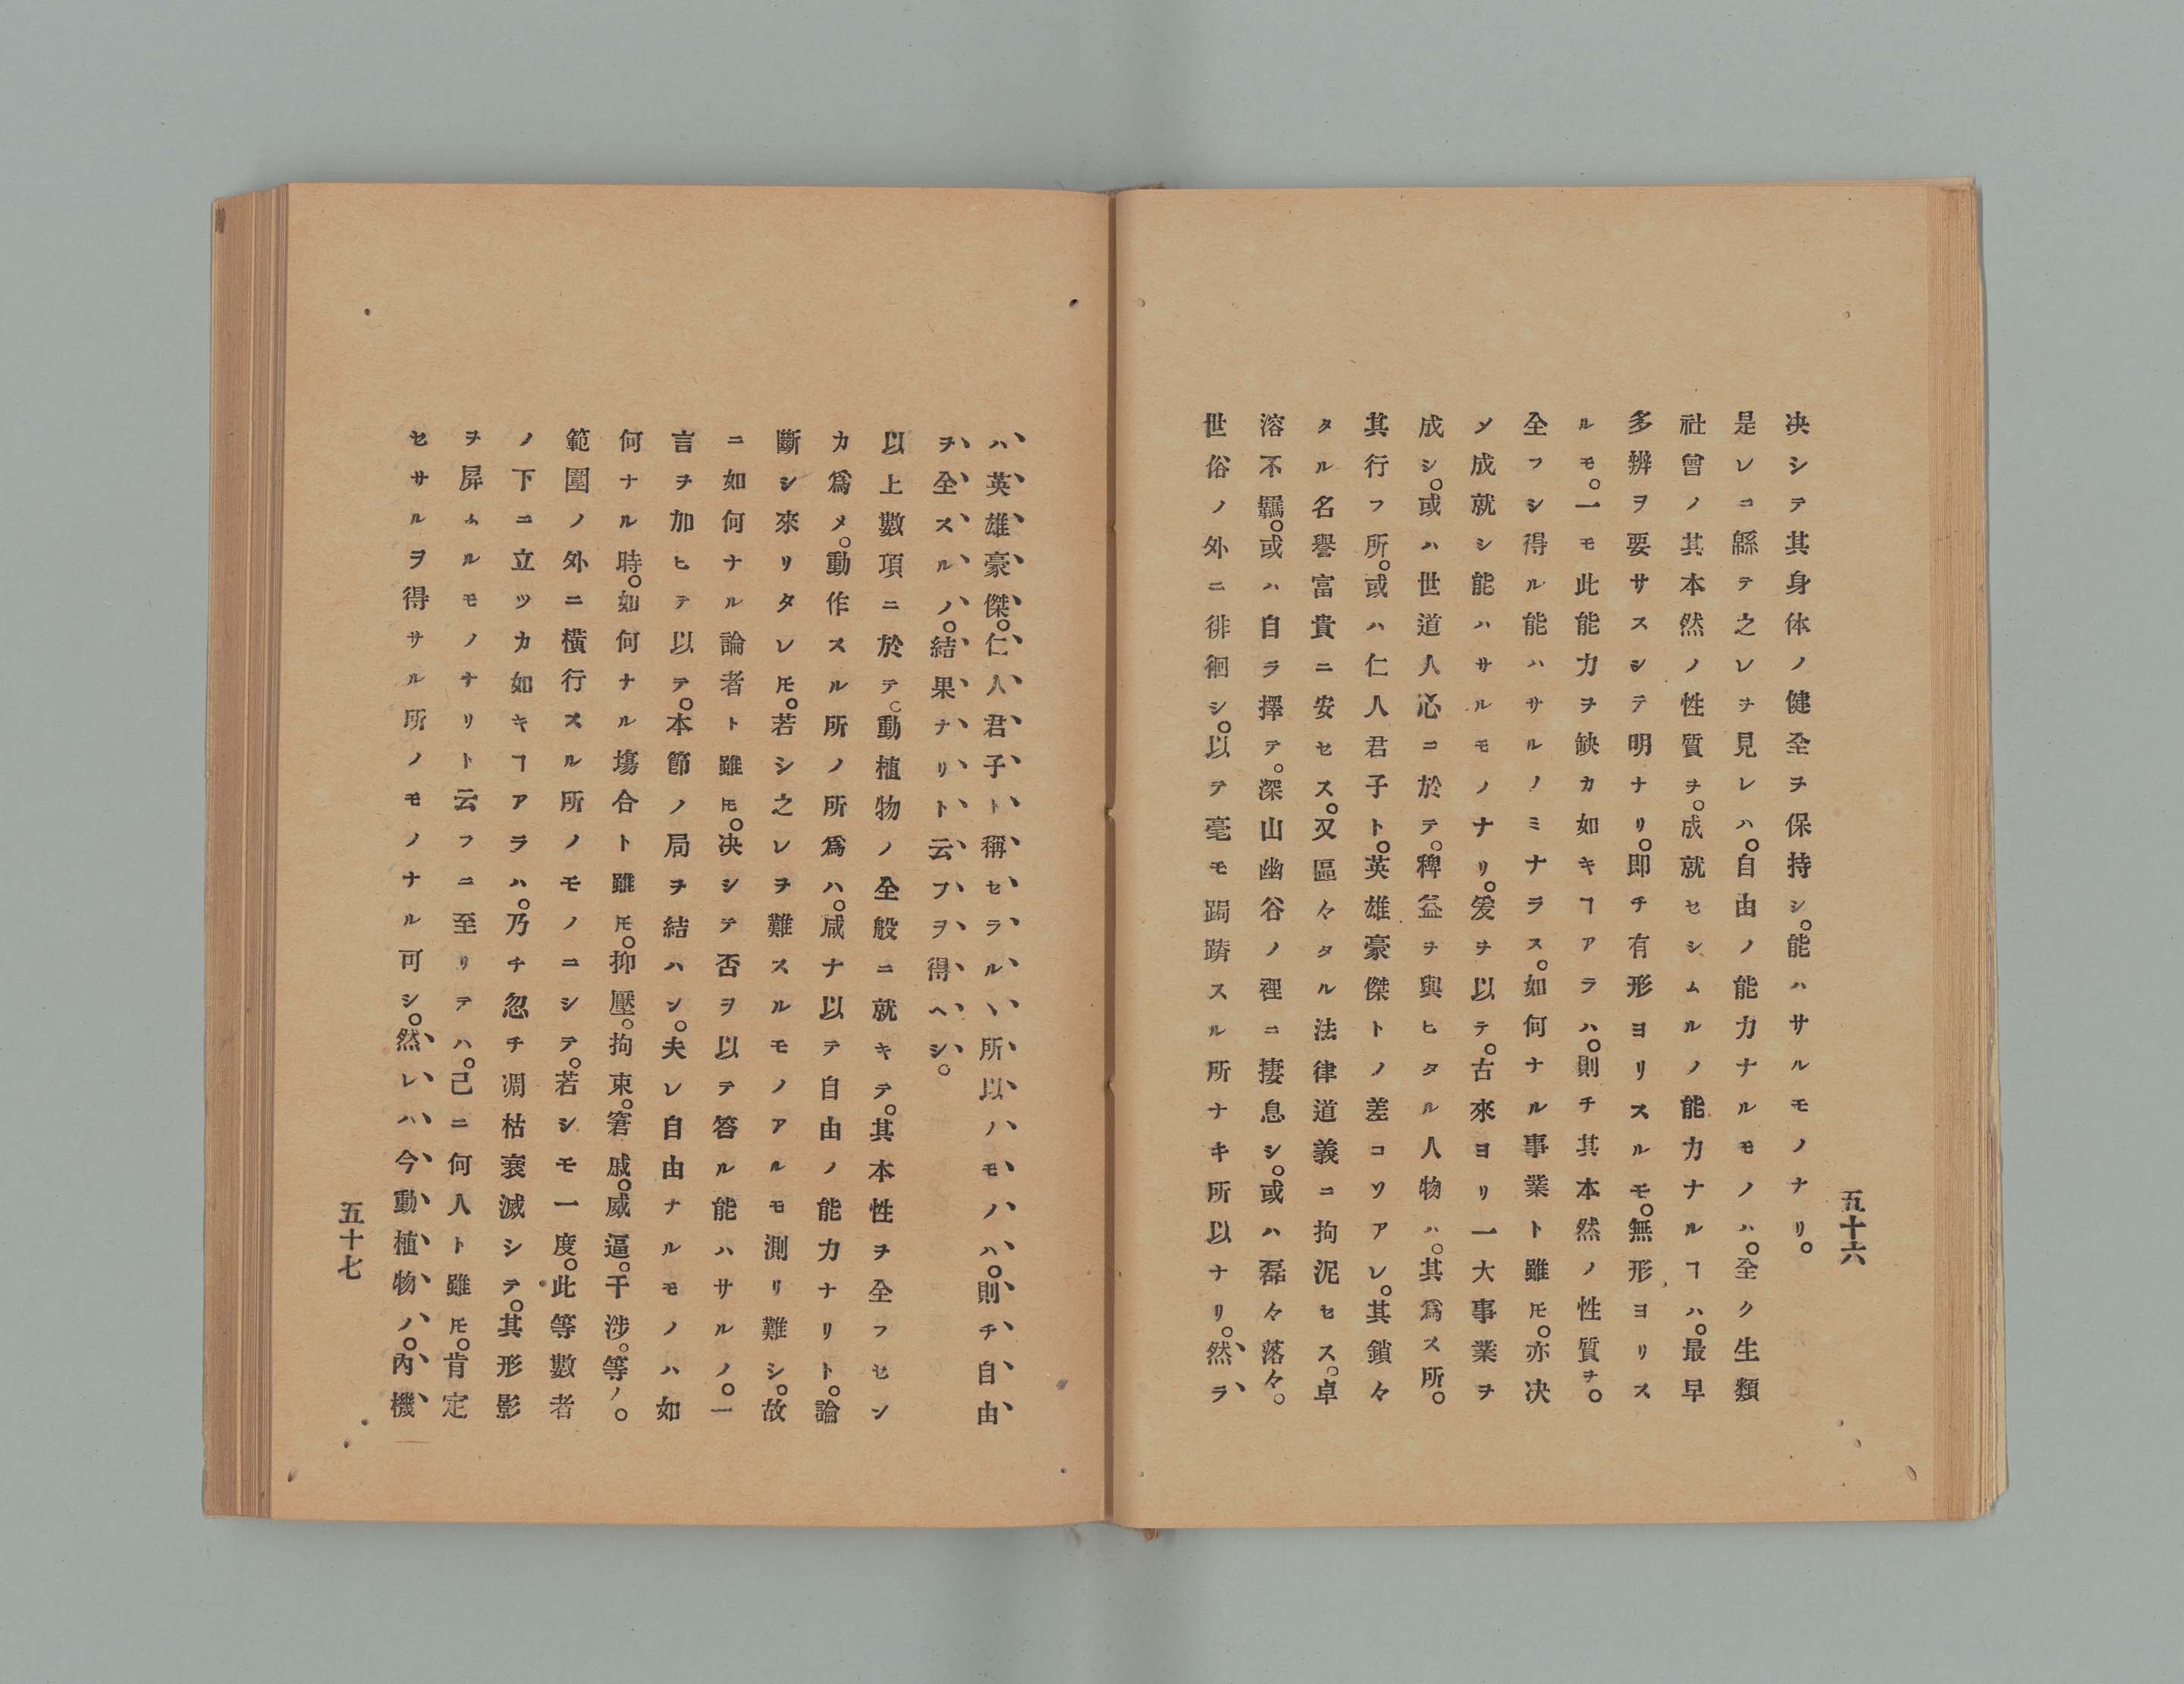 五十六
决シテ其身体ノ健全ヲ保持シ。能ハサルモノナリ。
是レニ繇テ之レヲ見レハ。自由ノ能力ナルモノハ。全ク生類
社曾ノ其本然ノ性質ヲ。成就セシムルノ能力ナルヿハ。最早
多辨ヲ要サスシテ明ナリ。即チ有形ヨリスルモ。無形ヨリス
ルモ。一モ此能力ヲ缺カ如キヿアラハ。則チ其本然ノ性質ヲ。
全フシ得ル能ハサルノミナラス。如何ナル事業ト雖𪜈。亦决
ソ成就シ能ハサルモノナリ。爰ヲ以テ。古來ヨリ一大事業ヲ
成シ。或ハ世道人心ニ於テ。稗益ヲ與ヒタル人物ハ。其爲ス所。
其行フ所。或ハ仁人君子ト。英雄豪傑トノ差コソアレ。其鎖々
タル名譽富貴ニ安セス。又區々タル法律道義ニ拘泥セス。卓
溶不羈。或ハ自ラ擇テ。深山幽谷ノ裡ニ捿息シ。或ハ磊々落々。
世俗ノ外ニ徘徊シ。以テ毫モ跼蹐スル所ナキ所以ナリ。然ラ
ハ英雄豪傑。仁人君子ト稱セラルヽ所以ノモノハ。則チ自由
ヲ全スルノ。結果ナリト云フヲ得ヘシ。
以上數項ニ於テ。動植物ノ全般ニ就キテ。其本性ヲ全フセン
カ爲メ。動作スル所ノ所爲ハ。咸ナ以テ自由ノ能力ナリト。論
斷シ來リタレ𪜈。若シ之レヲ難スルモノアルモ測リ難シ。故
ニ如何ナル論者ト雖𪜈。决シテ否ヲ以テ答ル能ハサルノ。一
言ヲ加ヒテ以テ。本節ノ局ヲ結ハン。夫レ自由ナルモノハ如
何ナル時。如何ナル塲合ト雖𪜈。抑壓。拘束。窘戚。威逼。干涉。等ノ。
範圍ノ外ニ橫行スル所ノモノニシテ。若シモ一度。此等數者
ノ下ニ立ツカ如キヿアラハ。乃チ忽チ凋枯衰滅シテ。其形影
ヲ屏ムルモノナリト云フニ至リテハ。己ニ何人ト雖𪜈。肯定
セサルヲ得サル所ノモノナル可シ。然レハ今動植物ノ。內機
五十七